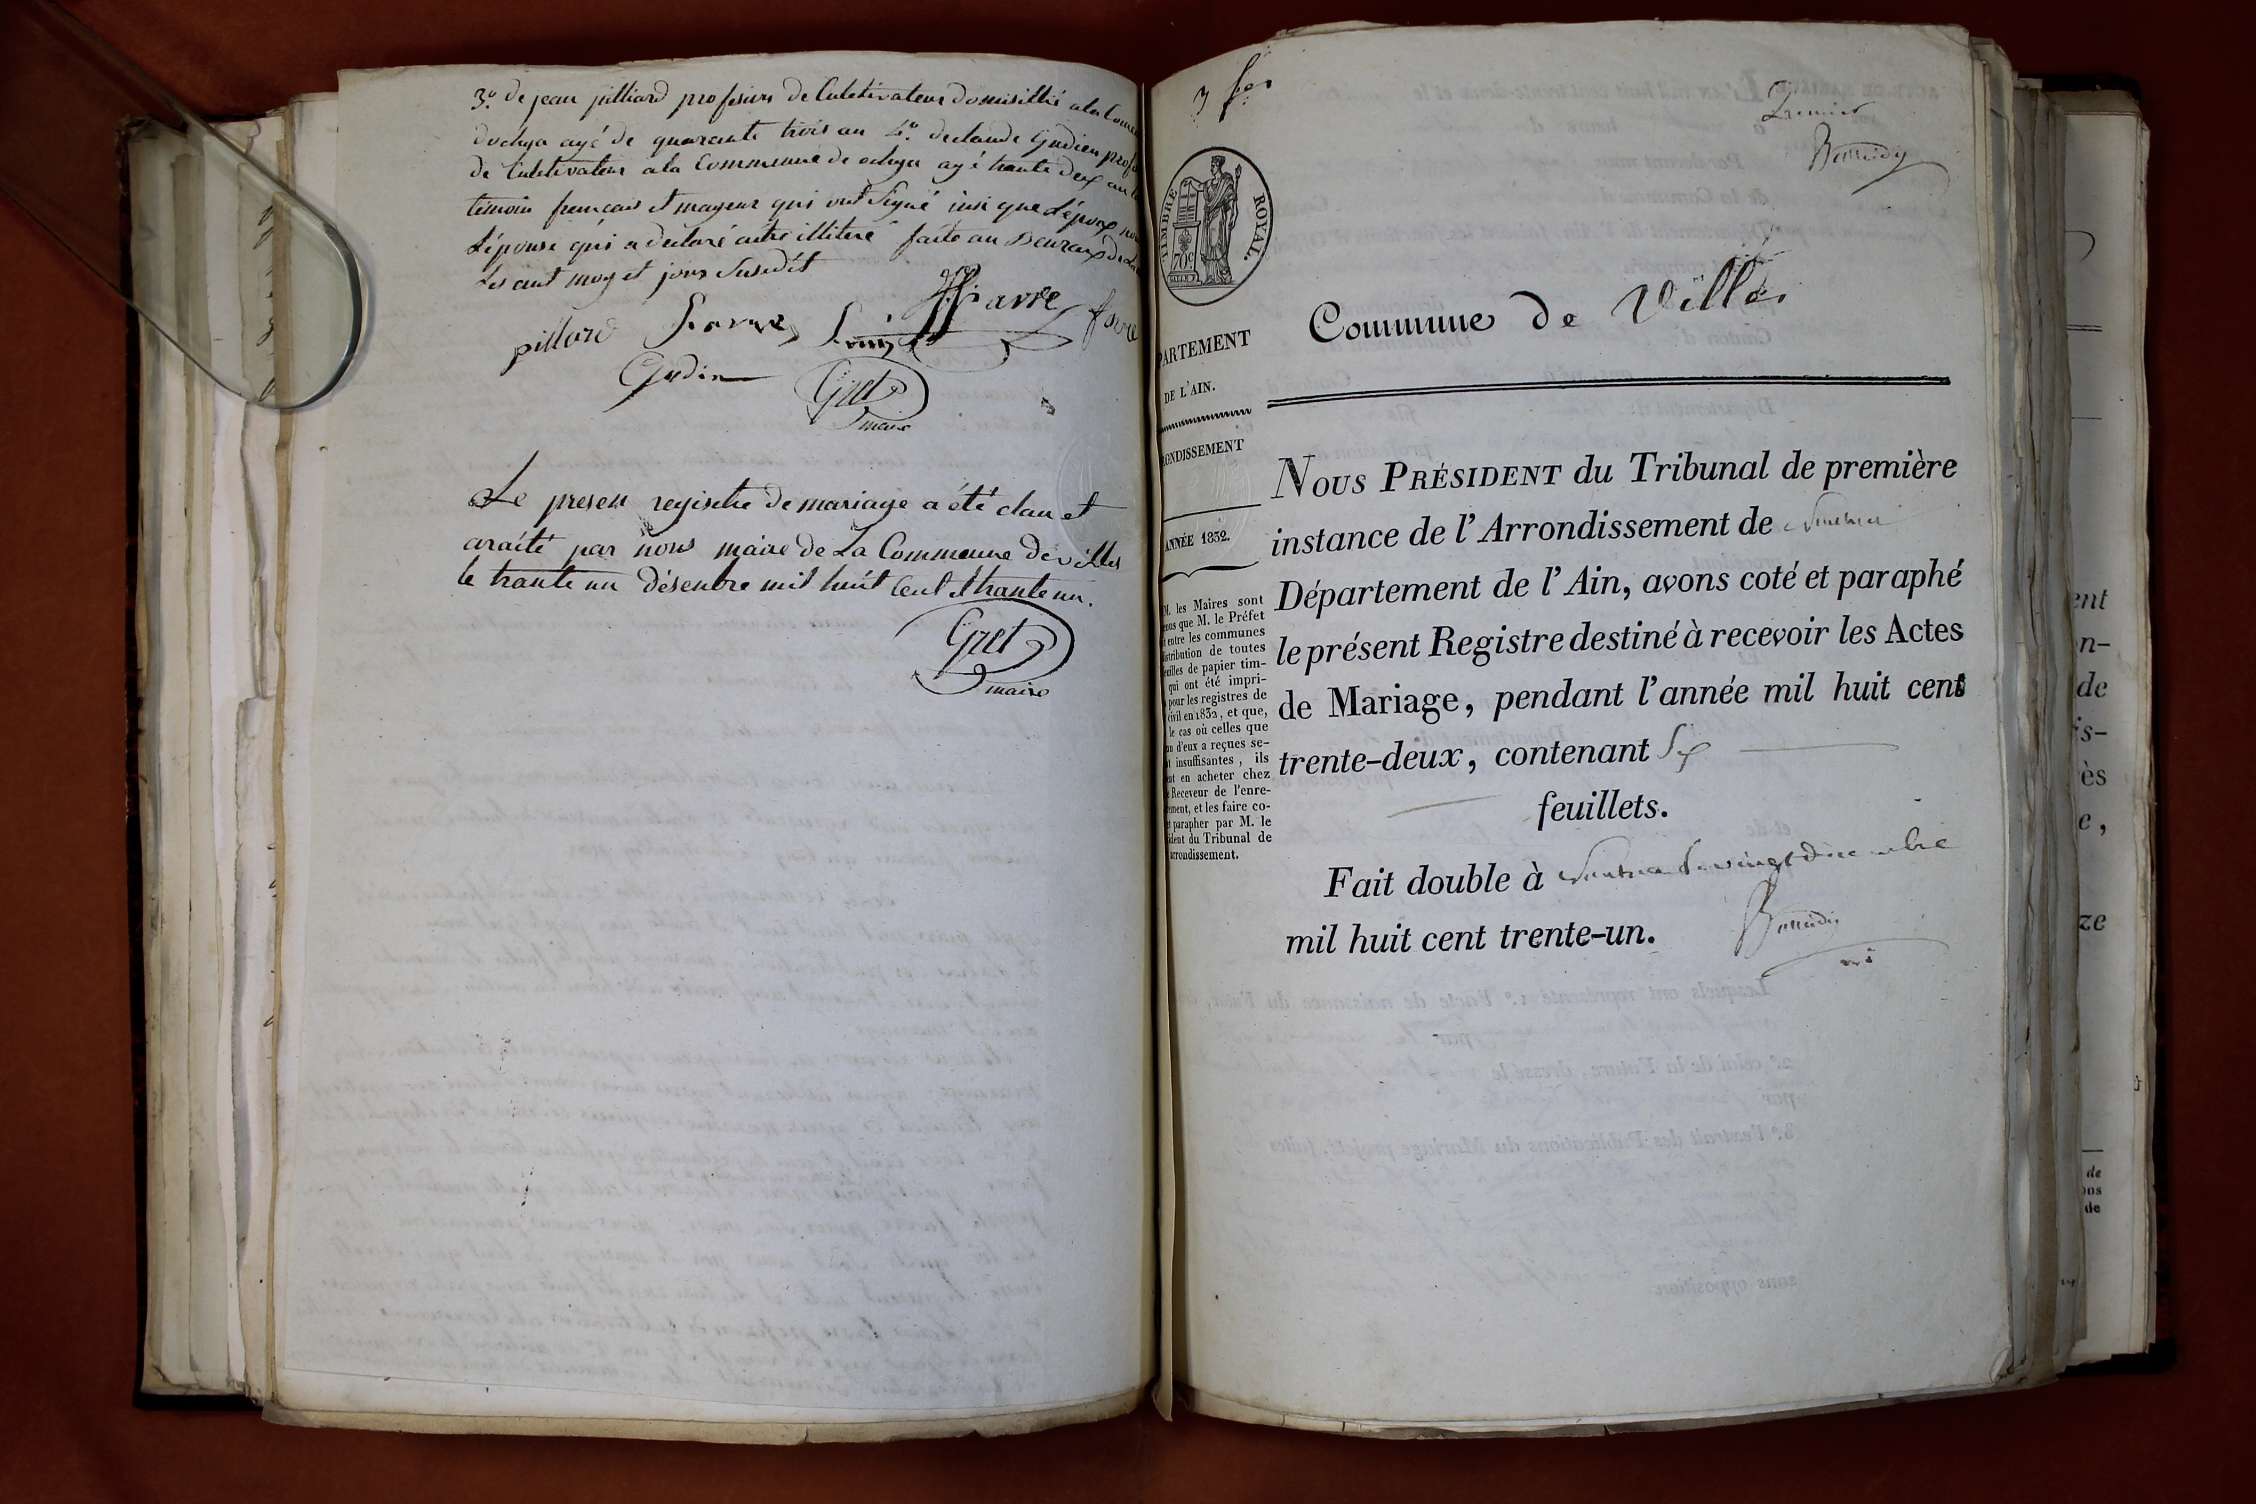 3.º de jean pilliard profesiun de Cultivateur domisillié a la Comu
dochya agé de quarante trois an 4.º de claude Gudien prof
de Cultivateur a la Commune de ochya agé trante deux an
témoin francais et mayeur qui ont Signé insi que l'époux non
L'épouse qui a declaré aitre illiteré faite au Beuraux de la
Les ant moy et jour Susedit
pillard
favre
Gudin
Gret
maire
Le presen registre de mariage a été clau et
araité par nous maire de La Commeune de villes
le trante un désenbre mil huit Cent thrante un.
Gret
maire
Premier
TIMBRE ROYAL.
70c
PARTEMENT
DE L'AIN.
RONDISSEMENT
ANNÉE 1832.
M. les Maires sont
enus que M. le Préfet
entre les communes
istribution de toutes
euilles de papier tim-
qui ont été impri-
pour les registres de
civil en 1832, et que,
le cas où celles que
n d'eux a reçues se-
t insuffisantes, ils
ent en acheter chez
Receveur de l'enre-
ement, et les faire co-
t parapher par M. le
ident du Tribunal de
arrondissement.
Commune de Villes
NOUS PRÉSIDENT du Tribunal de première
instance de l'Arrondissement de Nantua
Département de l'Ain, avons coté et paraphé
le présent Registre destiné à recevoir les Actes
de Mariage, pendant l'année mil huit cent
trente-deux, contenant Six
feuillets.
Fait double à Nantua le vingt décembre
mil huit cent trente-un.
ent
n-
de
is-
ès
e,
ze
de
ons
de